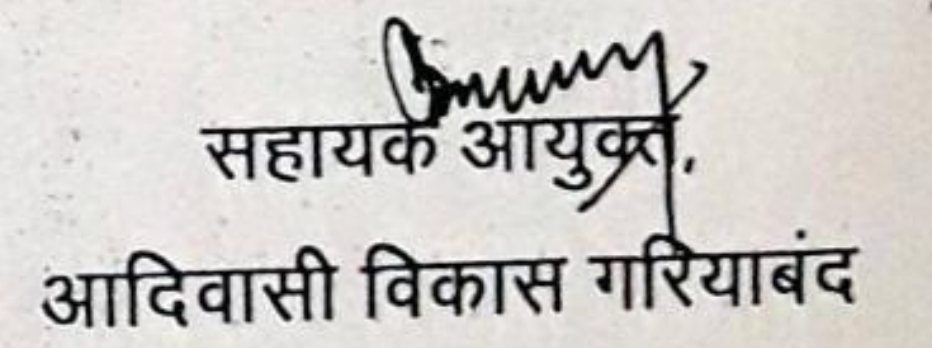 सहायक आयुक्त,
आदिवासी विकास गरियाबंद